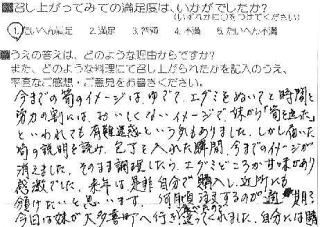 ■召し上がってみての満足度は、いかがでしたか?
(いずれかに○をつけてください)
1.たいへん満足 2.満足 3.普通 4.不満 5.たいへん不満
■うえの答えは、どのような理由からですか?
また、どのような料理にて召し上がられたかを記入のうえ、
率直なご感想・ご意見をお書きください。
今までの筍のイメージは、ゆでて、エグミをぬいてと時間と
労力の割には、おいしくないイメージで、妹から「筍を送った」
といわれても有難迷惑という気もありました。しかし届いた
筍の説明を読み、包丁を入れた瞬間、今までのイメージが
消えました。そのまま調理したら、エグミどころか甘味があり
感激でした。来年は是非自分で購入し、近所にも
分けたいと思います。何月頃注文するのが
今日は妹が大多喜町へ行き送ってくれました。自分には